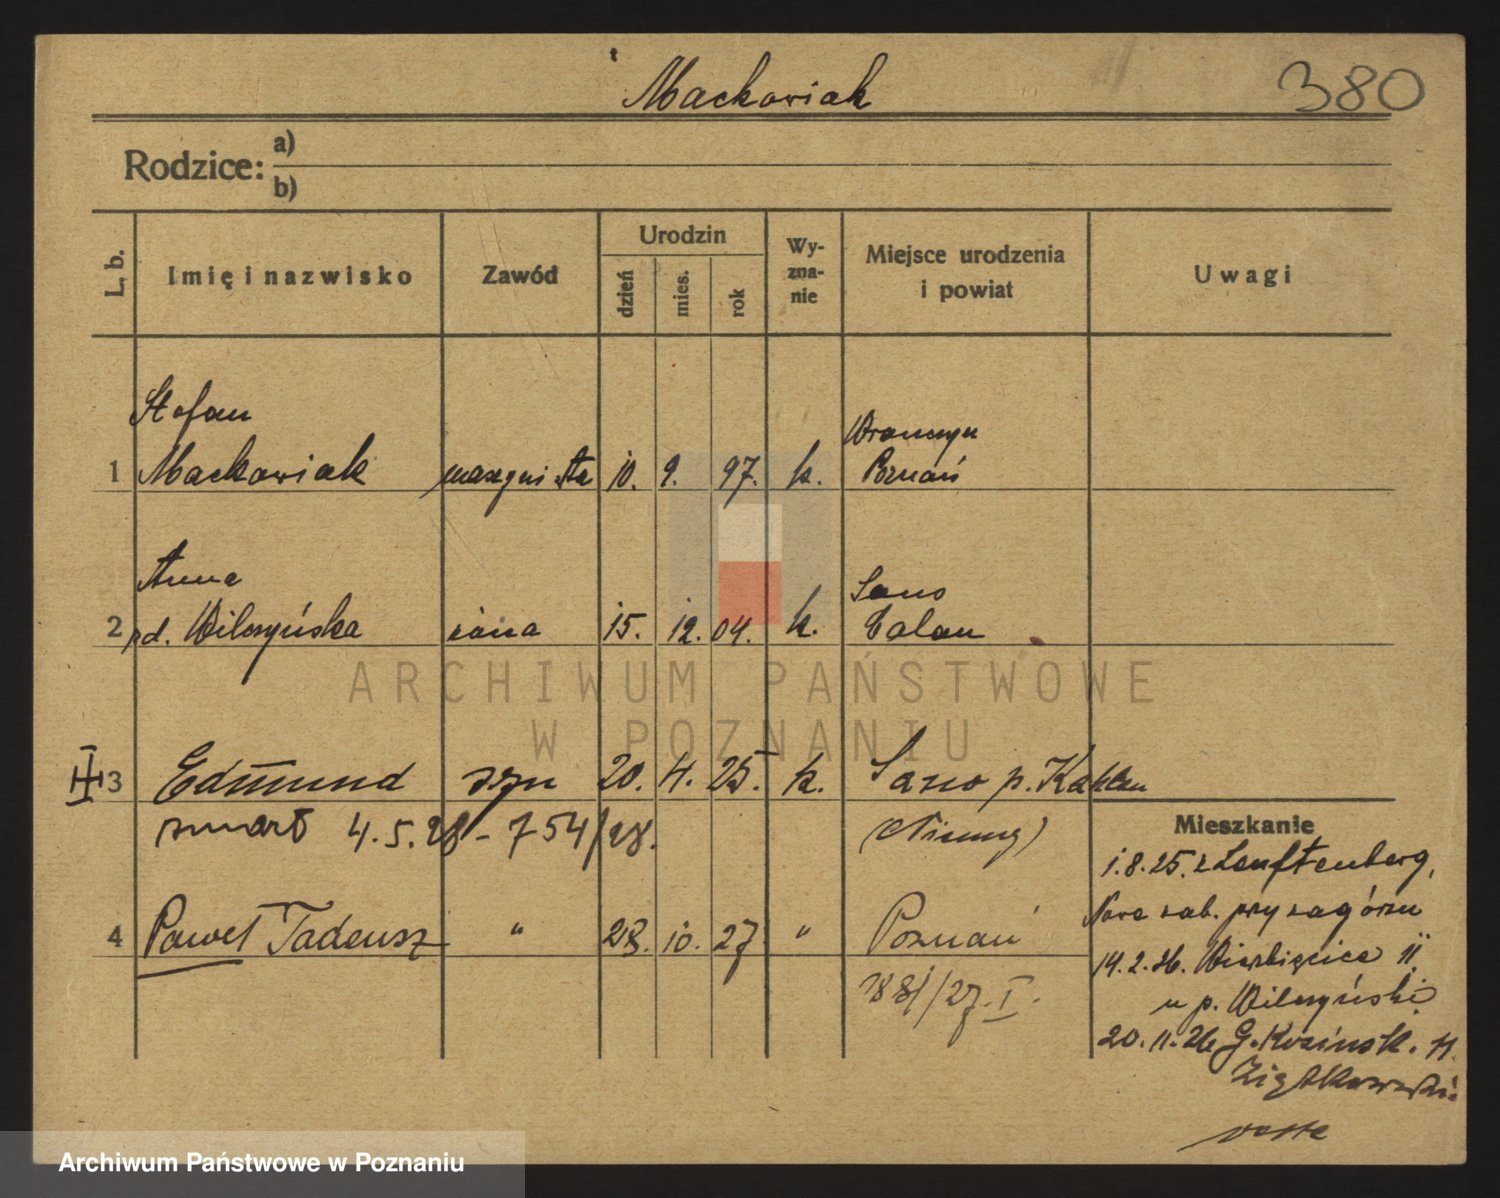 Mackowiak
380
Rodzice:
a)
b)
L. b.
Imię i nazwisko
Zawód
Urodzin
dzień
mies.
rok
Wy-
zna-
nie
Miejsce urodzenia
i powiat
Uwagi
Stefan
Wronczyn
1 Mackowiak maszynista 10. 9. 97. k. Poznań
Anna
2 rd. Wilczyńska żona 15. 12. 04. k. Calau
3 Edmund syn 20. 4. 25. k. p. Kahlau
zmarł 4.5.28 - 754/28.
(Niemcy)
Mieszkanie
1.8.25. z
4 Paweł Tadeusz " 28. 10. 27 " Poznań
przy
14.2.26. Wierzbięcice 11
u p. Wilczyński
20.11.26 G.
ARCHIWUM PAŃSTWOWE
W POZNANIU
Archiwum Państwowe w Poznaniu